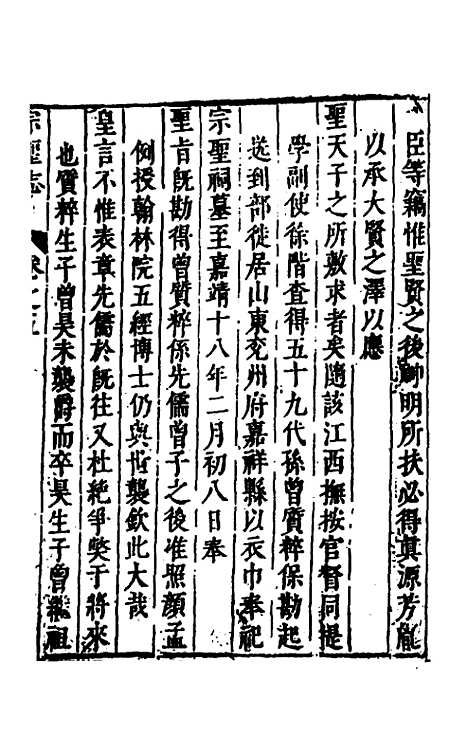 臣等竊惟聖賢之後神明所扶必得真源芳胤
以承大賢之澤以應
聖天子之所敷求者矣隨該江西撫按官督同提
學副使徐階查得五十九代孫曾質粹保勘起
送到部徙居山東兖州府嘉祥縣以衣巾奉祀
宗聖祠墓至嘉靖十八年二月初八日奉
聖旨既勘得曾質粹係先儒曾子之後准照顔孟
例授翰林院五經博士仍與世襲欽此大哉
皇言不惟表章先儒於既往又杜絶爭奬于將來
也質粹生子曾昊未襲爵而卒昊生子曾繼祖
宗聖志 卷之五